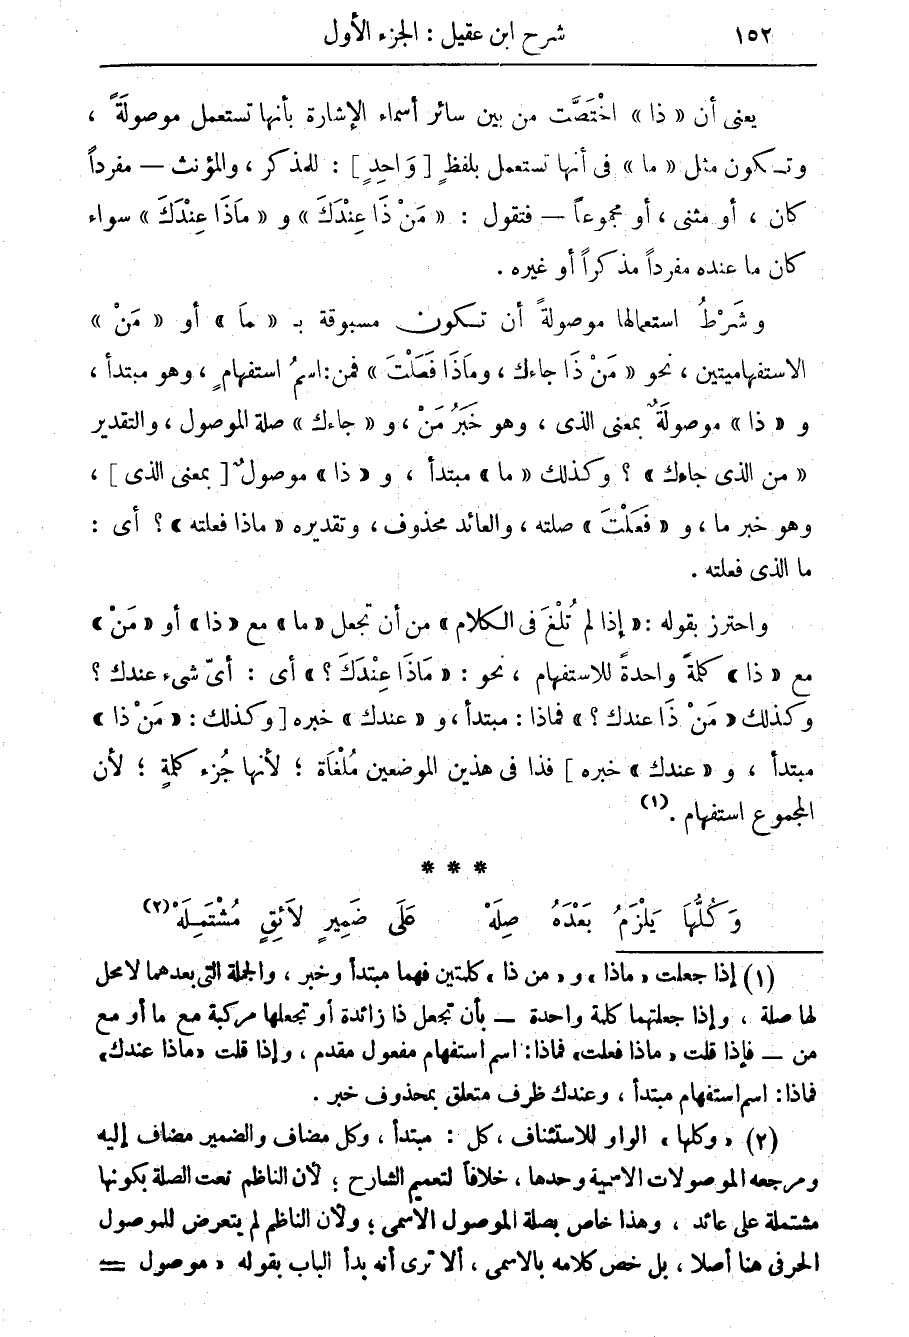 ١٥٢ شرح ابن عقيل : الجزء الأول
يعنى أن « ذا » اخْتَصَّت من بين سائر أسماء الإشارة بأنها تستعمل موصولَةً ،
وتـكون مثل « ما » فى أنها تستعمل بلفظٍ [ وَاحِدٍ ] : للمذكر ، والمؤنث — مفرداً
كان ، أو مثنى ، أو مجموعاً — فتقول : « مَنْ ذَا عِنْدَكَ » و « مَاذَا عِنْدَكَ » سواء
كان ما عنده مفرداً مذكراً أو غيره .
وشَرْطُ استعمالها موصولةً أن تـكون مسبوقة بـ « مَا » أو « مَنْ »
الاستفهاميتين ، نحو « مَنْ ذَا جاءك ، وماَذَا فَعَلْتَ » فمن : اسمُ استفهامٍ ، وهو مبتدأ ،
و « ذا » موصولَةٌ بمعنى الذى ، وهو خَبَرُ مَنْ ، و « جاءك » صلة الموصول ، والتقدير
« من الذى جاءك » ؟ وكذلك « ما » مبتدأ ، و « ذا » موصولٌ [ بمعنى الذى ] ،
وهو خبر ما ، و « فَعَلْتَ » صلته ، والعائد محذوف ، وتقديره « ماذا فعلته » ؟ أى :
ما الذى فعلته .
واحترز بقوله : « إذا لم تُلْغَ فى الكلام » من أن تجعل « ما » مع « ذا » أو « مَنْ »
مع « ذا » كلمةً واحدةً للاستفهام ، نحو : « مَاذَا عِنْدَكَ ؟ » أى : أىّ شىء عندك ؟
وكذلك « مَنْ ذَا عندك ؟ » فماذا : مبتدأ ، و « عندك » خبره [ وكذلك : « مَنْ ذا »
مبتدأ ، و « عندك » خبره ] فذا فى هذين الموضعين مُلْغَاة ؛ لأنها جُزء كلمةٍ ؛ لأن
المجموع استفهام . (١)
* * *
وَكُلُّهَا يَلْزَمُ بَعْدَهُ صِلَهْ عَلَى ضَمِيرٍ لاَئِقٍ مُشْتَمِلَهْ (٢)
(١) إذا جعلت « ماذا » و « من ذا » كلمتين فهما مبتدأ وخبر ، والجملة التى بعدهما لامحل
لها صلة ، وإذا جعلتهما كلمة واحدة — بأن تجعل ذا زائدة أو تجعلها مركبة مع ما أو مع
من — فإذا قلت « ماذا فعلت » فماذا : اسم استفهام مفعول مقدم ، وإذا قلت « ماذا عندك »
فماذا : اسم استفهام مبتدأ ، وعندك ظرف متعلق بمحذوف خبر .
(٢) « وكلها » الواو للاستئناف ، كل : مبتدأ ، وكل مضاف والضمير مضاف إليه
ومرجعه الموصولات الاسمية وحدها ، خلافاً لتعميم الشارح ؛ لأن الناظم نعت الصلة بكونها
مشتملة على عائد ، وهذا خاص بصلة الموصول الاسمى ؛ ولأن الناظم لم يتعرض للموصول
الحرفى هنا أصلا ، بل خص كلامه بالاسمى ، ألا ترى أنه بدأ الباب بقوله « موصول =